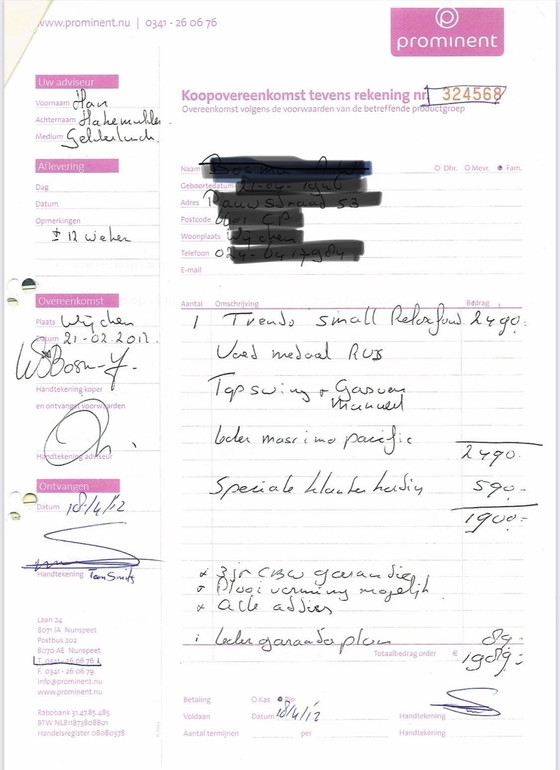 www.prominent.nu | 0341 - 26 06 76
prominent
Uw adviseur
Voornaam Han
Achternaam
Medium
Koopovereenkomst tevens rekening nr. 324568
Overeenkomst volgens de voorwaarden van de betreffende productgroep
Aflevering
Dag
Datum
Opmerkingen
± 12 weken
Naam
Dhr. Mevr. Fam.
Geboortedatum
Adres
Postcode
Woonplaats
Telefoon
E-mail
Overeenkomst
Plaats Wijchen
Datum 21-02-2012
Handtekening koper
en ontvangst voorwaarden
Handtekening adviseur
Ontvangen
Datum 18/4/12
Handtekening
Aantal Omschrijving Bedrag
1 Trendo small Relaxfaut. 2490.-
Voet RVS
Topswing + Gasveer
Manueel
leder massimo pacific
2490.-
Speciale klantenkorting 590.-
1900.-
* 3 jr CBW garantie
* Plooivorming mogelijk
* Acte adviseur
1 leder garantieplan 89.-
Totaalbedrag order € 1989.-
Laan 24
8071 JA Nunspeet
Postbus 202
8070 AE Nunspeet
T. 0341 - 26 06 76
F. 0341 - 26 06 79
info@prominent.nu
www.prominent.nu
Rabobank 31.47.85.485
BTW NL811873808B01
Handelsregister 08080578
Betaling Kas Pin
Voldaan Datum 18/4/12 Handtekening
Aantal termijnen per Handtekening